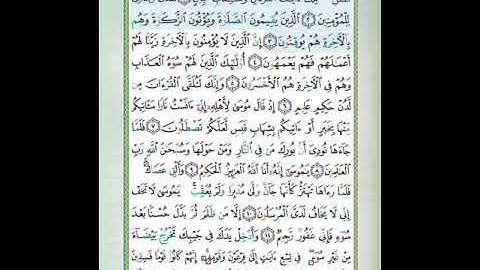 لِّلْمُؤْمِنِينَ ٢ الَّذِينَ يُقِيمُونَ الصَّلَوٰةَ وَيُؤْتُونَ الزَّكَوٰةَ وَهُم
بِالْآخِرَةِ هُمْ يُوقِنُونَ ٣ إِنَّ الَّذِينَ لَا يُؤْمِنُونَ بِالْآخِرَةِ زَيَّنَّا لَهُمْ
أَعْمَالَهُمْ فَهُمْ يَعْمَهُونَ ٤ أُولَٰئِكَ الَّذِينَ لَهُمْ سُوءُ الْعَذَابِ
وَهُمْ فِي الْآخِرَةِ هُمُ الْأَخْسَرُونَ ٥ وَإِنَّكَ لَتُلَقَّى الْقُرْءَانَ مِن
لَّدُنْ حَكِيمٍ عَلِيمٍ ٦ إِذْ قَالَ مُوسَىٰ لِأَهْلِهِ إِنِّي ءَانَسْتُ نَارًا سَـَٔاتِيكُم
مِّنْهَا بِخَبَرٍ أَوْ ءَاتِيكُم بِشِهَابٍ قَبَسٍ لَّعَلَّكُمْ تَصْطَلُونَ ٧ فَلَمَّا
جَاءَهَا نُودِيَ أَنۢ بُورِكَ مَن فِي النَّارِ وَمَنْ حَوْلَهَا وَسُبْحَٰنَ اللَّهِ رَبِّ
الْعَٰلَمِينَ ٨ يَٰمُوسَىٰ إِنَّهُ أَنَا اللَّهُ الْعَزِيزُ الْحَكِيمُ ٩ وَأَلْقِ عَصَاكَ
فَلَمَّا رَءَاهَا تَهْتَزُّ كَأَنَّهَا جَانٌّ وَلَّىٰ مُدْبِرًا وَلَمْ يُعَقِّبْ يَٰمُوسَىٰ لَا تَخَفْ
إِنِّي لَا يَخَافُ لَدَيَّ الْمُرْسَلُونَ ١٠ إِلَّا مَن ظَلَمَ ثُمَّ بَدَّلَ حُسْنًۢا بَعْدَ
سُوءٍ فَإِنِّي غَفُورٌ رَّحِيمٌ ١١ وَأَدْخِلْ يَدَكَ فِي جَيْبِكَ تَخْرُجْ بَيْضَاءَ
مِنْ غَيْرِ سُوءٍ فِي تِسْعِ ءَايَٰتٍ إِلَىٰ فِرْعَوْنَ وَقَوْمِهِ إِنَّهُمْ كَانُوا قَوْمًا فَٰسِقِينَ